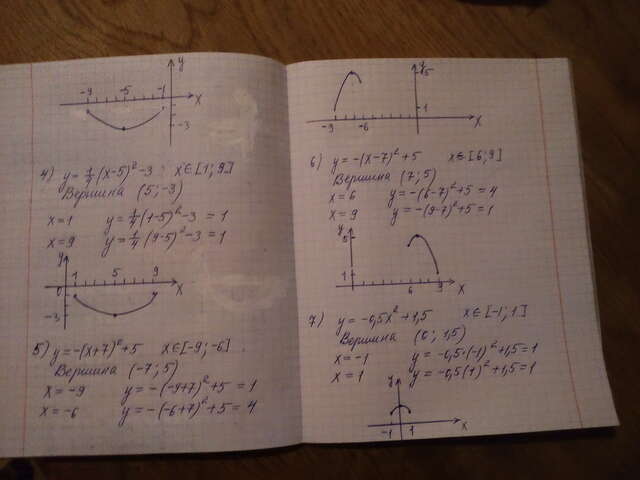 y
-9 -5 -1 x
-3
4) y = 1/4 (x-5)² - 3 x∈[1; 9]
Вершина (5; -3)
x = 1 y = 1/4 (1-5)² - 3 = 1
x = 9 y = 1/4 (9-5)² - 3 = 1
y
0 1 5 9 x
-3
5) y = -(x+7)² + 5 x∈[-9; -6]
Вершина (-7; 5)
x = -9 y = -(-9+7)² + 5 = 1
x = -6 y = -(-6+7)² + 5 = 4
y
5
1
-9 -6 x
6) y = -(x-7)² + 5 x∈[6; 9]
Вершина (7; 5)
x = 6 y = -(6-7)² + 5 = 4
x = 9 y = -(9-7)² + 5 = 1
y
5
1
6 9 x
7) y = -0,5x² + 1,5 x∈[-1; 1]
Вершина (0; 1,5)
x = -1 y = -0,5·(-1)² + 1,5 = 1
x = 1 y = -0,5(1)² + 1,5 = 1
y
-1 1 x